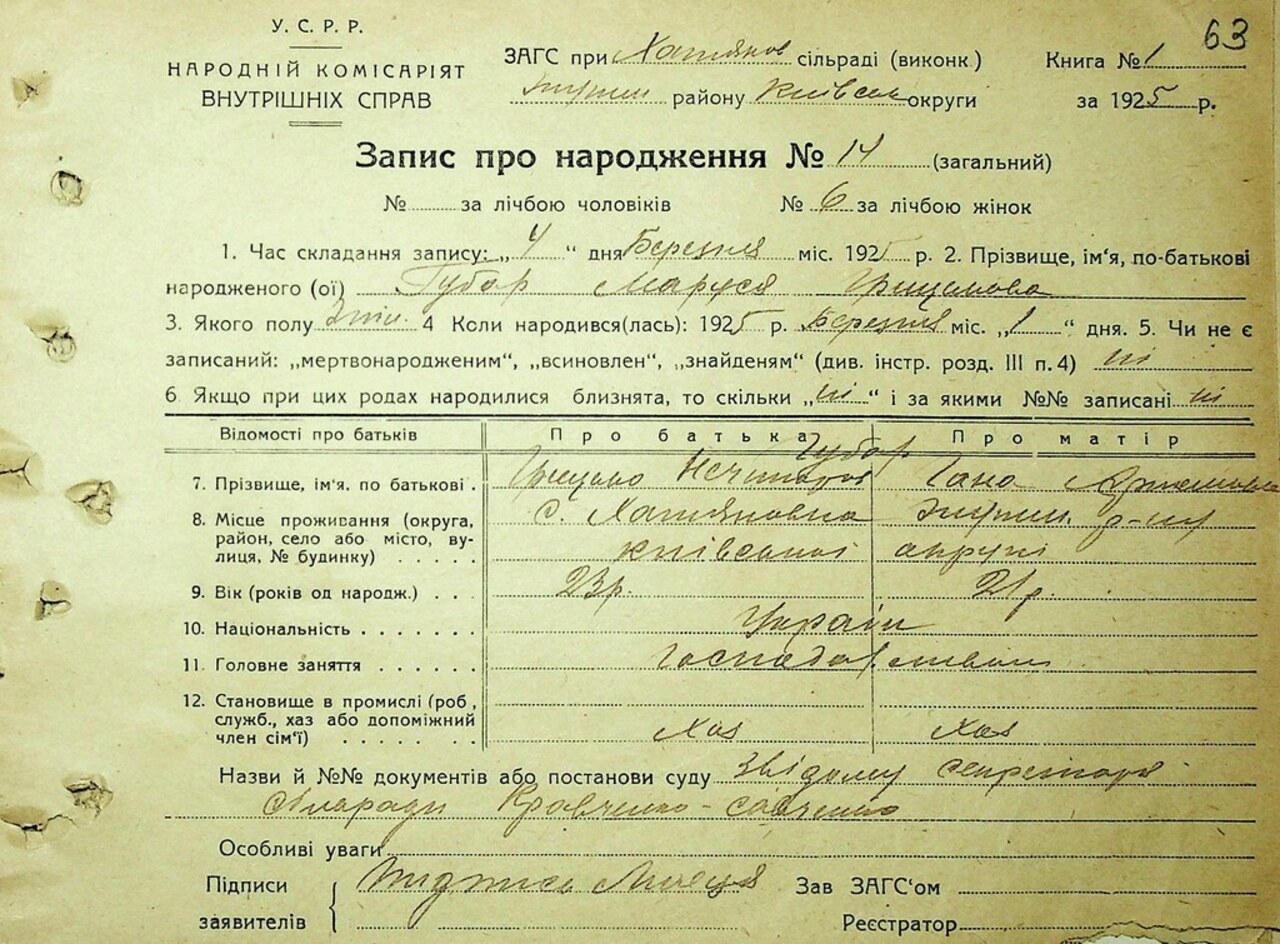 63
У. С. Р. Р.
НАРОДНІЙ КОМІСАРІЯТ
ВНУТРІШНІХ СПРАВ
ЗАГС при Хотянов сільраді (виконк.)
району Київськ округи
Книга № 1
за 1925 р.
Запис про народження № 14 (загальний)
№ за лічбою чоловіків № 6 за лічбою жінок
1. Час складання запису: „4“ дня Березня міс. 1925 р. 2. Прізвище, ім'я, по-батькові
народженого (ої) Губар Маруся Грицькова
3. Якого полу Жін. 4 Коли народився(лась): 1925 р. Березня міс. „1“ дня. 5. Чи не є
записаний: „мертвонародженим“, „всиновлен“, „знайденям“ (див. інстр. розд. III п. 4) ні
6 Якщо при цих родах народилися близнята, то скільки „ні“ і за якими №№ записані ні
Відомості про батьків Про батька Про матір
Губар
7. Прізвище, ім'я, по батькові . Грицько Нечипоров Гана
8. Місце проживання (округа, с. Хотяновка р-ну
район, село або місто, ву-
лиця, № будинку) . . . . . київської округи
9. Вік (років од народж.) . . . 23р. 21р.
10. Національність . . . . . . . Україн
11. Головне заняття . . . . . . Господарством
12. Становище в промислі (роб,
служб., хаз або допоміжний
член сім'ї) . . . . . . . Хаз Хаз
Назви й №№ документів або постанови суду звідому секретаря
сільради Кравченко-
Особливі уваги
Підписи
заявителів
Підпись
Зав ЗАГС'ом
Реєстратор